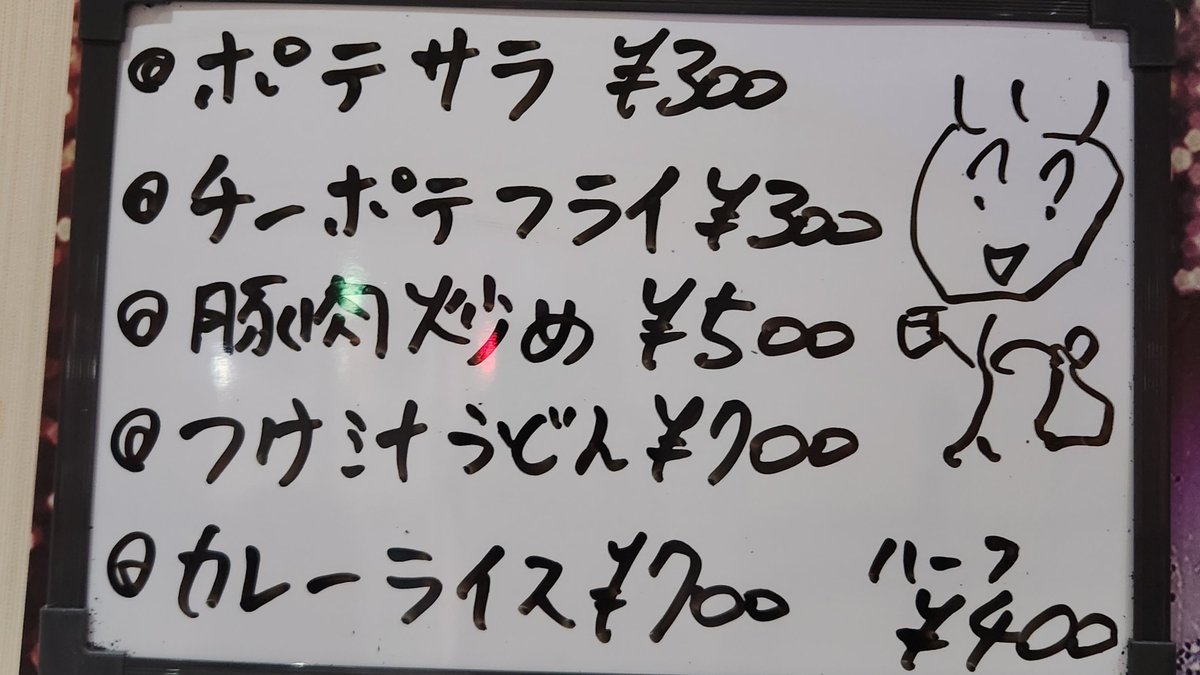 ◎ポテサラ ¥300
◎チーポテフライ ¥300
◎豚肉炒め ¥500
◎つけ汁うどん ¥700
◎カレーライス ¥700 ハーフ ¥400